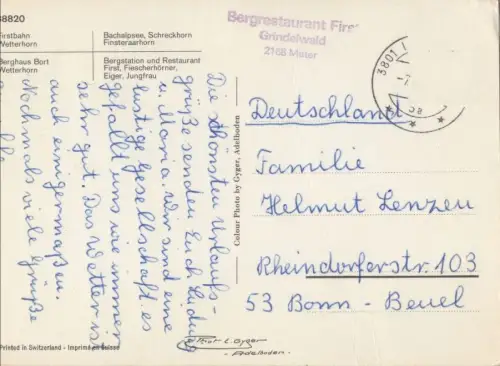 38820
Firstbahn
Wetterhorn
Bachalpsee, Schreckhorn
Finsteraarhorn
Berghaus Bort
Wetterhorn
Bergstation und Restaurant
First, Fiescherhörner,
Eiger, Jungfrau
Bergrestaurant First
Grindelwald
2168 Meter
3801
Die schönsten Urlaubs-
grüße senden Euch Ludwig
u. Maria. Wir sind eine
lustige Gesellschaft es
gefällt uns wie immer
sehr gut. Das Wetter ist
auch einigermaßen.
Nochmals viele Grüße
Colour Photo by Gyger, Adelboden
Deutschland
Familie
Helmut Lenzen
Rheindorferstr. 103
53 Bonn - Beuel
Printed in Switzerland - Imprimé en Suisse
E. Gyger
Adelboden.